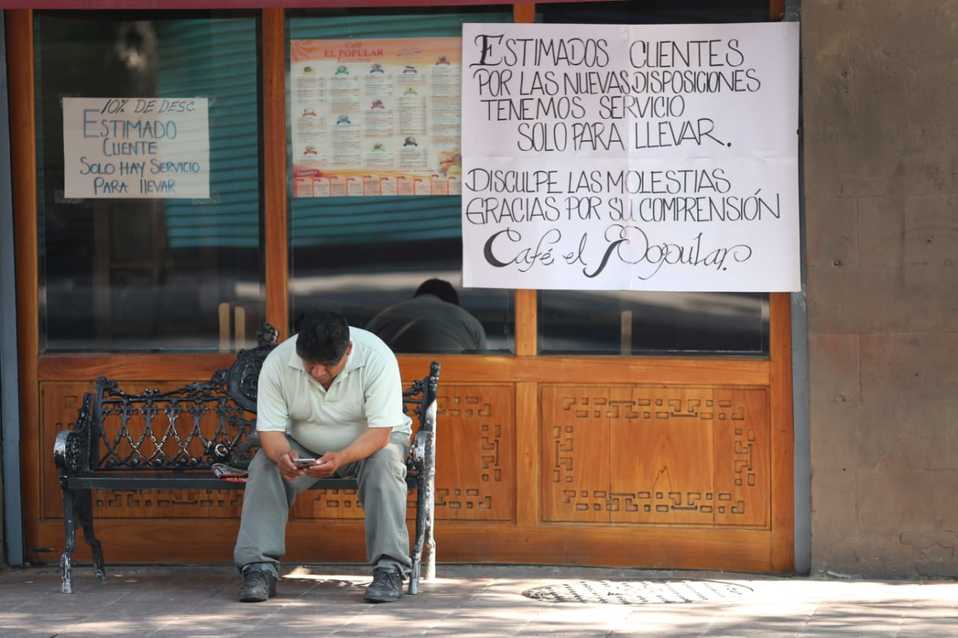 10% DE DESC.
ESTIMADO
CLIENTE
SOLO HAY SERVICIO
PARA llEVAR
Café
EL POPULAR
ESTIMADOS CLIENTES
POR LAS NUEVAS DISPOSICIONES
TENEMOS SERVICIO
SOLO PARA LLEVAR.
DISCULPE LAS MOLESTIAS
GRACIAS POR SU COMPRENSIÓN
Café el Popular.